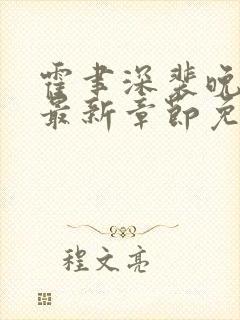 霍聿深裴晚
最新章节免
程文亮